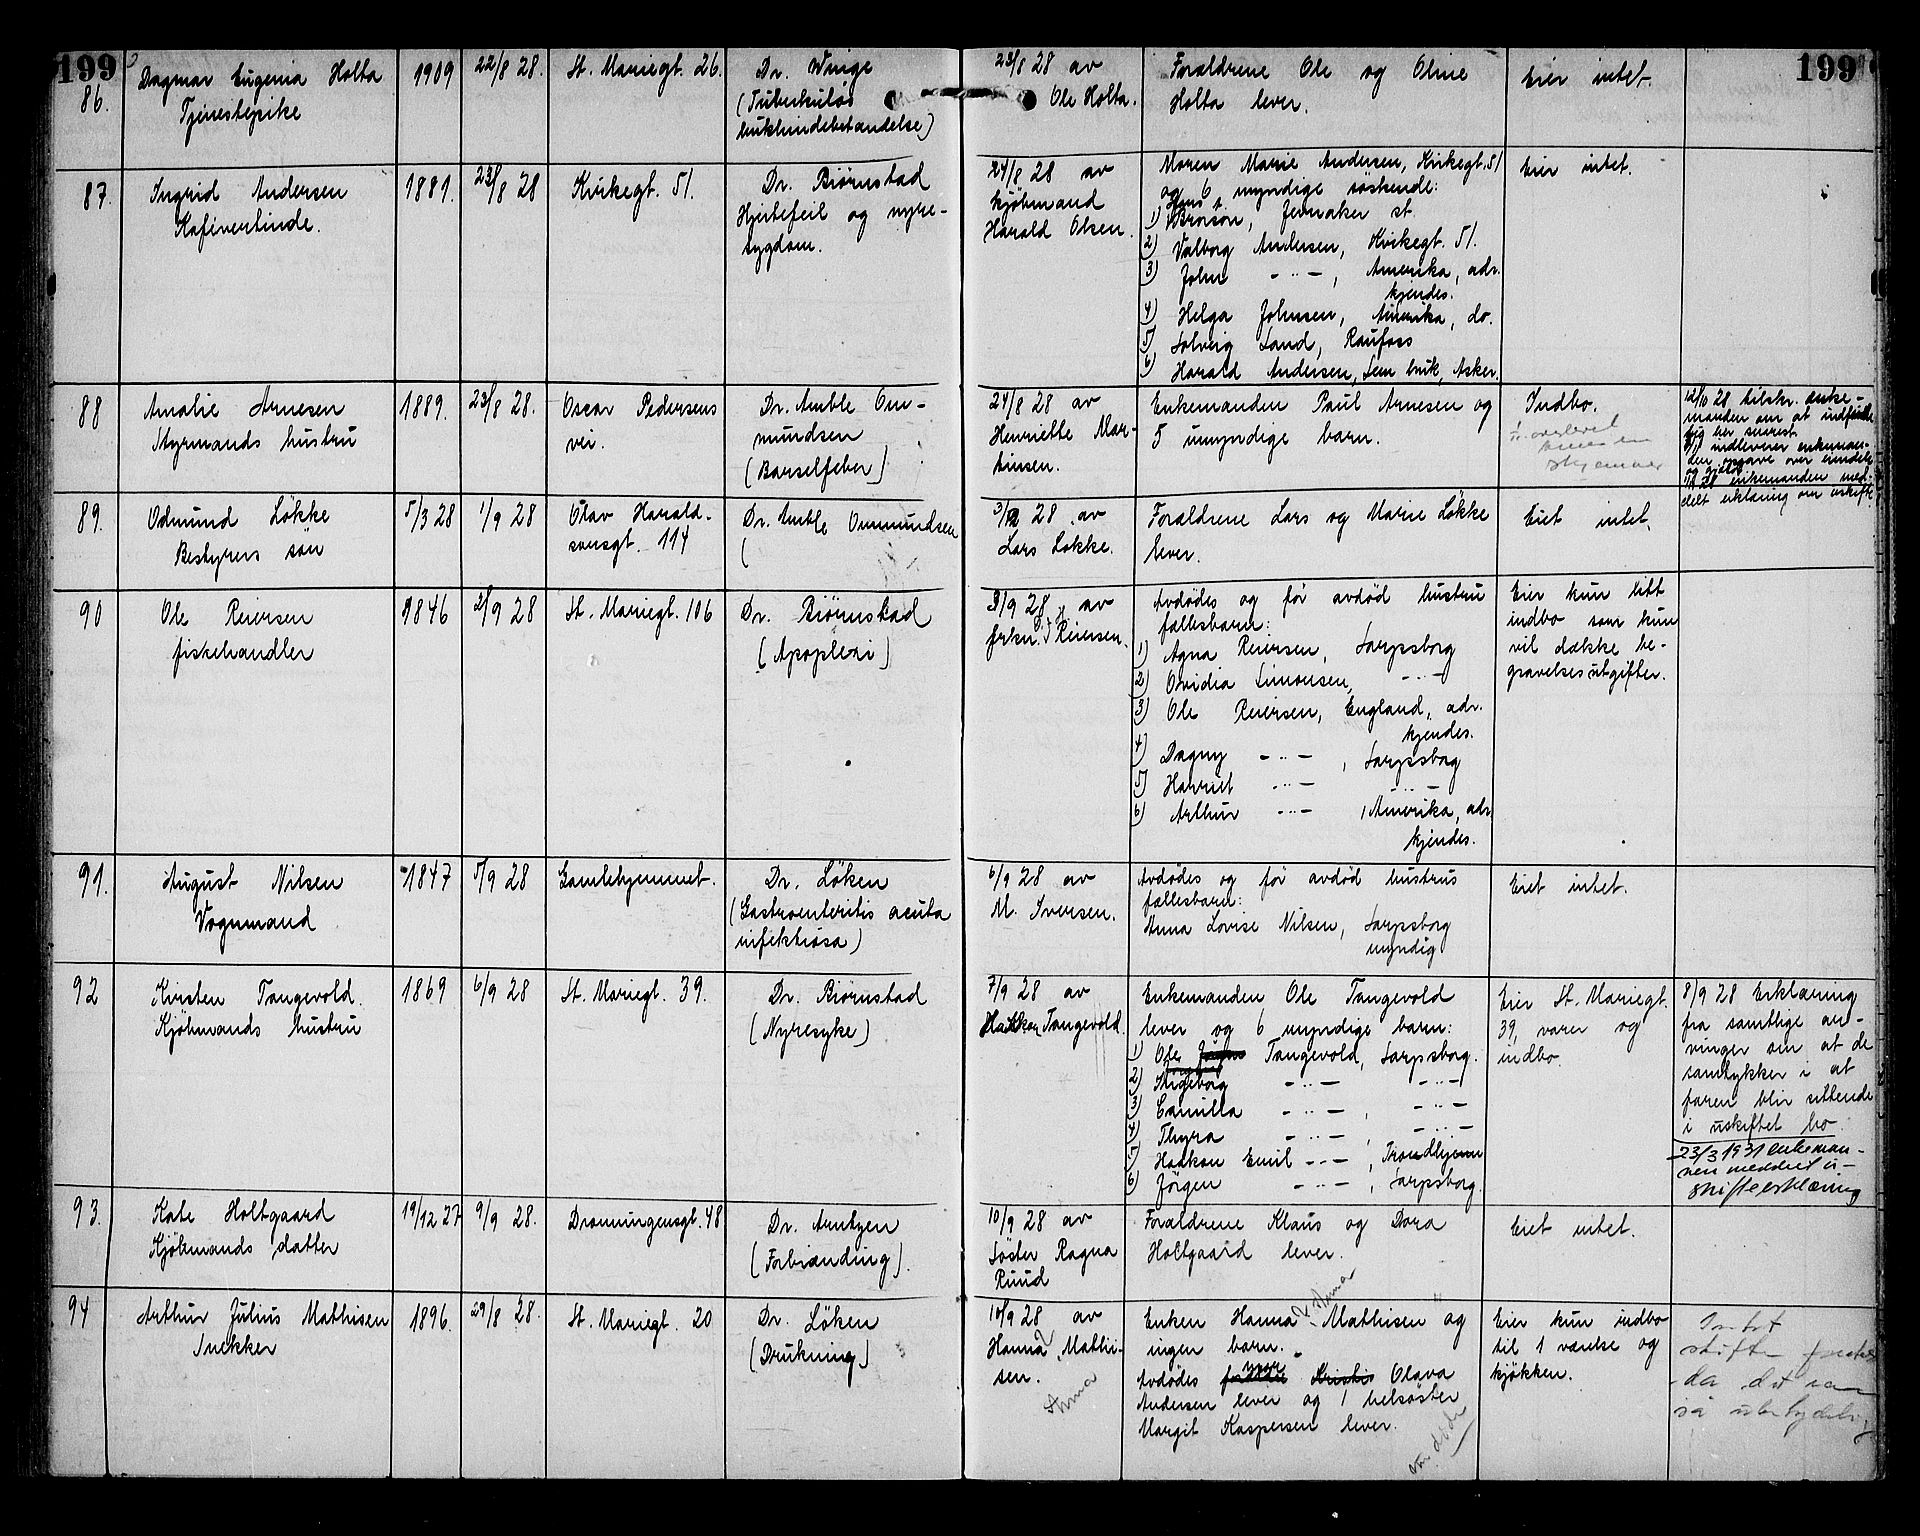 199
199
86.
Dagmar Eugenia Holta
Tjenestepike
1909
22/8 28.
St. Mariegt. 26.
Dr. Winge
(Tuberkuløs
bukhindebetændelse)
23/8 28 av
Ole Holta.
Forældrene Ole og Oline
Holta lever.
Eier intet.
87.
Ingrid Andersen
Kafévertinde.
1881.
23/8 28
Kirkegt. 51.
Dr. Biørnstad
Hjertefeil og nyre-
sygdom.
24/8 28 av
kjöbmand
Harald Olsen.
Moren Marie Andersen, Kirkegt. 51
og 6 myndige söskende:
1) Brorson, Jevnaker st.
2) Valborg Andersen, Kirkegt. 51.
3) John - " - , Amerika, adr.
kjendes.
4) Helga Johnsen, Amerika, do.
5) Solveig Sand, Raufoss
6) Harald Andersen, Sem bruk, Asker.
Eier intet.
88
Amalie Arnesen
Styrmands hustru
1889.
23/8 28.
Oscar Pedersens
vei.
Dr. Amble Om-
mundsen
(Barselfeber)
24/8 28 av
Henriette Mar-
tinsen.
Enkemanden Paul Arnesen og
5 umyndige barn.
Indbo.
12/10 28 tilskr. enke-
manden om at indfinde
sig her snarest.
indleverer enkeman-
den opgave over eiendele
og gjæld
28 enkemanden med-
delt erklæring om uskifte.
89.
Odmund Løkke
Bestyrers sön
5/3 28
1/9 28
Olav Harald-
sonsgt. 114
Dr. Amble Ommundsen
(
28 av
Lars Løkke.
Forældrene Lars og Marie Løkke
lever.
Eiet intet.
90
Ole Reiersen
fiskehandler
1846
2/9 28
St. Mariegt. 106
Dr. Biørnstad
(Apoplexi)
3/9 28 av
frkn. Reiersen.
Avdødes og før avdød hustru
fællesbarn:
1) Agna Reiersen, Sarpsborg
2) Ovidia Simonsen, - " -
3) Ole Reiersen, England, adr.
kjendes.
4) Dagny - " - , Sarpsborg
5) Harriet - " - - " -
6) Arthur - " - , Amerika, adr.
kjendes.
Eier kun litt
indbo som kun
vil dække be-
gravelsesutgifter.
91.
August Nilsen
Vognmand
1847
5/9 28
Gamlehjemmet.
Dr. Löken
(Gastroenteritis acuta
infektiösa)
6/9 28 av
M. Iversen.
Avdødes og før avdød hustrus
fællesbarn:
Anna Lovise Nilsen, Sarpsborg
myndig
Eiet intet.
92
Kirsten Tangevold.
Kjöbmands hustru
1869
6/9 28
St. Mariegt. 39.
Dr. Biørnstad
(Nyresyke)
7/9 28 av
Tangevold.
Enkemanden Ole Tangevold
lever og 6 myndige barn:
1) Ole Tangevold, Sarpsborg.
2) Ingeborg - " - - " -
3) Camilla - " - , - " -
4) Thyra - " - , - " -
5) Haakon Emil - " - , Trondhjem
6) Jörgen - " - , Sarpsborg.
Eier St. Mariegt.
39, varer og
indbo.
8/9 28 Erklæring
fra samtlige ar-
vinger om at de
samtykker i at
faren blir sittende
i uskiftet bo.
23/3 1931 enkeman-
nen meddelt u-
skifteerklæring
93.
Kate Holtgaard
Kjöbmands datter
19/12 27
9/9 28.
Dronningensgt. 48
Dr. Arntzen
(Forbrænding).
10/9 28 av
Søster Ragna
Ruud
Forældrene Klaus og Dora
Holtgaard lever.
Eiet intet.
94
Arthur Julius Mathisen
Snekker
1896.
29/8 28.
St. Mariegt. 20
Dr. Löken
(Drukning)
10/9 28 av
Hanna Mathi-
sen.
Anna
Enken Hanna Mathisen og
ingen barn.
Avdødes mor Olava
Andersen lever og 1 helsøster
Margit Kaspersen lever.
Eier kun indbo
til 1 værelse og
kjökken.
Intet
skifte
da det var
så ubetydelig